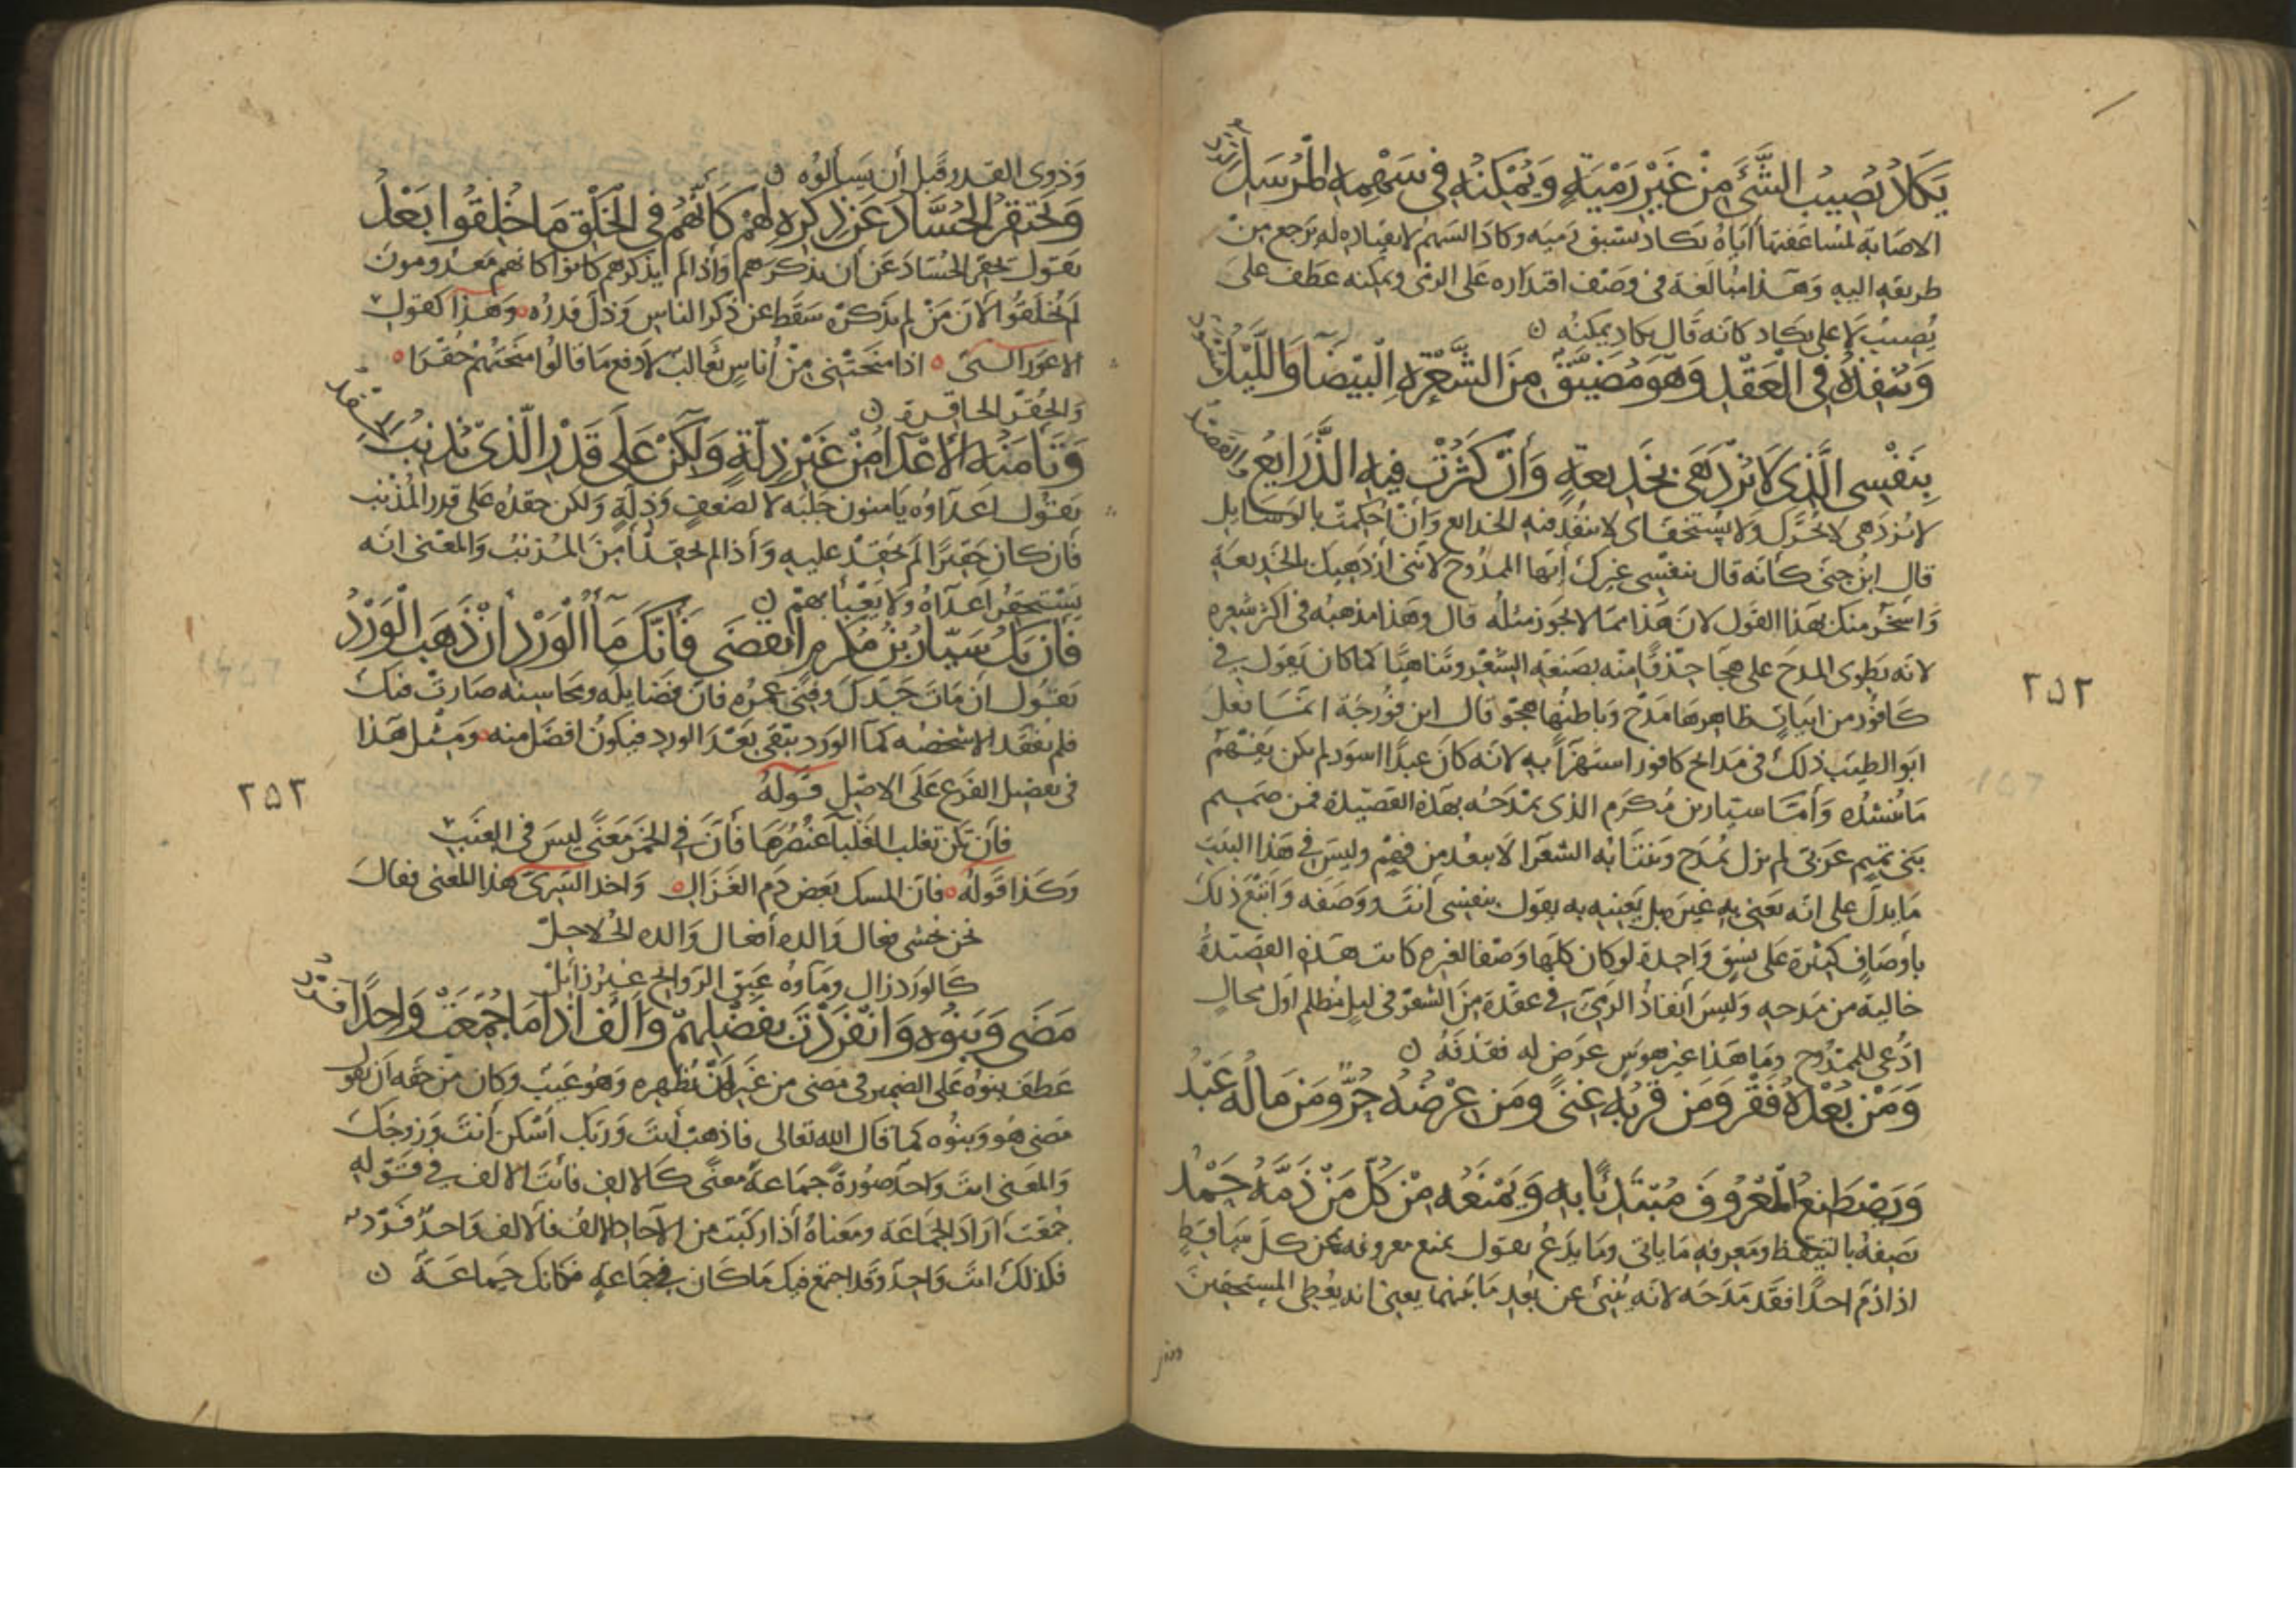 يَكَادُ يُصِيبُ الشَّيْءَ مِنْ غَيْرِ رَمْيَةٍ وَيُمْكِنُهُ فِي سَهْمِهِ الْمُرْسَلِ الرَّدُّ
الاصابة لمساعفتها اياه يكاد تسبق رميه وكاد السهم لانقياده له يرجع من
طريقه اليه وهذا مبالغة في وصف اقتداره على الرمى ويمكنه عطف على
يُصيبُ لا على يكاد كانه قال يكاد يمكنه ن
وَيُنْفِذُهُ فِي الْعَقْدِ وَهْوَ مُضَيَّقٌ مِنَ الشَّعْرَةِ الْبَيْضَا وَاللَّيْلُ مُسْوَدُّ
بِنَفْسِي الَّذِي لَا يُزْدَهَى بِخَدِيعَةٍ وَأَنْ كَثُرَتْ فِيهِ الذَّرَايِعُ وَالقَصْدُ
لا يُزدهى لا يُحرَّك ولا يستخف اى لا ينفُذ فيه الخدايع وان احكمت بالوسايل
قال ابنُ جنى كأنه قال بنفسى غيرك أيها الممدوح لاننى أزدهيك بالخديعة
واسخر منك بهذا القول لان هذا مما لا يجوز مثله قال وهذا مذهبه في اكثر شعره
لانه يطوى المدح على هجا حذقا منه بصنعة الشعر وتناهيا كما كان يقول في
كافور من ابيات ظاهرها مدح وباطنها هجو قال ابن فورجة انما فعل
ابو الطيب ذلك في مدايح كافور استهزآ به لانه كان عبدا اسود لم يكن يفهم
ما ينشده وأما سيار بن مكرم الذى يمدحه بهذه القصيدة فمن صميم
بنى تميم عربى لم يزل يُمدح وينتابه الشعرآ لا يبعد من فهم وليس في هذا البيت
ما يدل على انه يعنى به غيره بل يعنيه به يقول بنفسى أنت ووصفه واتبع ذلك
باوصاف كثيرة على نسق واحدة لو كان كلها وصفا لغيره كانت هذه القصيدة
خالية من مدحه وليس أنفاذ الرمى في عقدة من الشعر في ليل مظلم اول محال
ادُّعى للممدوح وما هذا غير هوس عرض له فقذفه ن
وَمَنْ بُعْدُهُ فَقْرٌ وَمَن قُرْبُهُ غِنًى وَمَن عِرْضُهُ حُرٌّ وَمَن مَالُهُ عَبْدُ
وَيَصْطَنِعُ الْمَعْرُوفَ مُبْتَدِئًا بِهِ وَيَمْنَعُهُ مِنْ كُلِّ مَنْ ذَمُّهُ حَمْدُ
يصفه بالتيقظ ومعرفة ما ياتى وما يدع يقول يمنع معروفه من كل ساقط
اذا ذمّ احدا فقد مدحه لانه يُنبئ عن بُعد ما بينهما يعنى انه يعطى المستحقين
٢٥٢
وذوى القدر قبل أن يسألوه ن
وَيَحْتَقِرُ الْحُسَّادَ عَن ذِكْرِهِ لَهُمْ كَأَنَّهُمْ فِي الْخَلْقِ مَا خُلِقُوا بَعْدُ
يقول يحقر الحساد عن أن يذكرهم واذا لم يذكرهم كانوا كانهم معدومون
لم يُخلقوا لان من لم يذكره سقط عن ذكر الناس وذل قدره وهذا كقول
الاعور الشنى اذا منحتنى من أناس ثعالب لادفع ما قالوا منحتهم حقرا
والحقر الحاقرة ن
وَتَأْمَنُهُ الْأَعْدَا مِنْ غَيْرِ ذِلَّةٍ وَلَكِنْ عَلَى قَدْرِ الَّذِي يُذْنِبُ الْحِقْدُ
يقول اعداوه يامنون جانبه لا لضعف وذلة ولكن حقده على قدر المذنب
فان كان حقيرا لم يحقد عليه واذا لم يحقد أمن المذنب والمعنى انه
يستحقر اعداه ولا يعبأ بهم ن
فَأَن يَكُ سَيَّارُ بْنُ مُكْرَمٍ انْقَضَى فَأَنَّكَ مَاءُ الْوَرْدِ أَنْ ذَهَبَ الْوَرْدُ
يقول ان مات جدك وفنى عمره فان فضايله ومحاسنه صارت فيك
فلم يفقد الا شخصه كما الورد يبقى بعد الورد فيكون افضل منه ومثل هذا
في تفضيل الفرع على الاصل قوله
فأن تكن تغلب الغلباء عنصرها فأن في الخمر معنى ليس في العنب
وكذا قوله فان المسك بعض دم الغزال واخذ السرى هذا المعنى فقال
كالورد زال وماوه عبق الروايح غير زايل
مَضَى وَبَنُوهُ وَانْفَرَدْتَ بِفَضْلِهِمْ وَأَلْفٌ اذَا مَا جُمِعَتْ وَاحِدًا فَرْدُ
عطف بنوه على الضمير في مضى من غير ان يُظهره وهو عيب وكان من حقه ان يقول
مضى هو وبنوه كما قال الله تعالى فاذهب أنت وربك اسكن أنت وزوجك
والمعنى انت واحد صورة جماعة معنى كالالف فأنت الالف في قوله
جُمّعت أراد الجماعة ومعناه أذا ركبت من الآحاد الالف فالالف واحد فرد
فكذلك انت واحد وقد اجتمع فيك ما كان في جماعة فكانك جماعة ن
٢٥٢